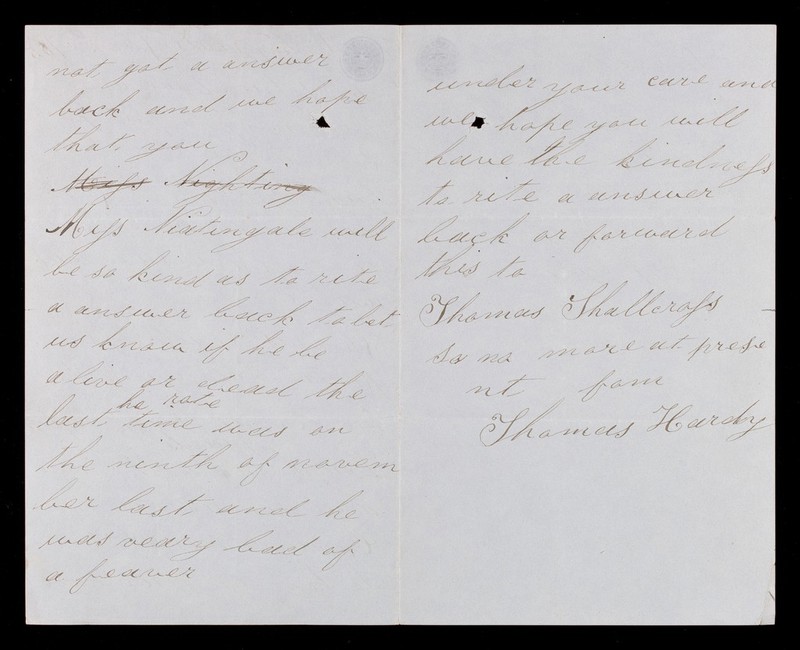 not got a answer
back and we hope
that you
Miss Nighting
Miss Niatingale will
be so kind as to rite
a answer back to let
us know if he be
alive or dead the
he rote
last time was on
the ninth of novem
ber last and he
was veary bad of
a feaver
under your care and
we hope you will
have the kindness
to rite a answer
back or forward
this to
Thomas Shallcross
so no more at prese
nt fom
Thomas Hardy